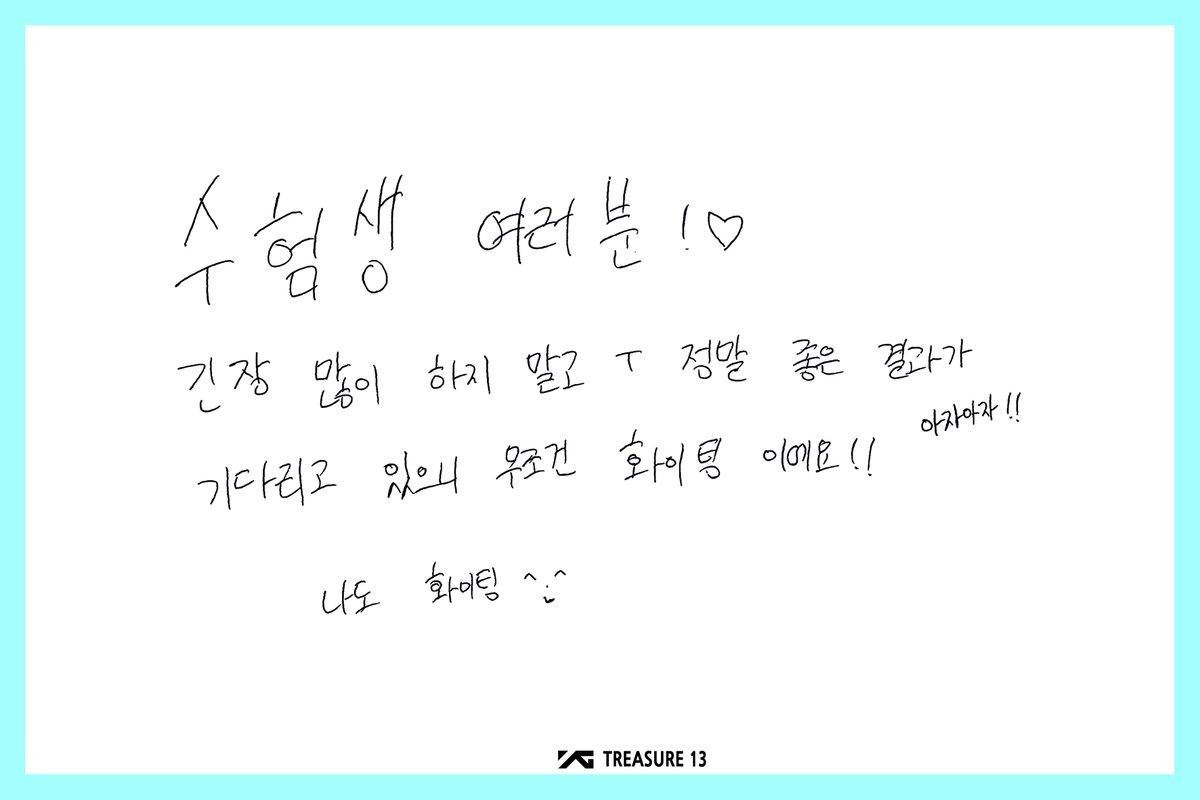 수험생 여러분!♡
긴장 많이 하지 말고 ㅜ 정말 좋은 결과가
기다리고 있으니 무조건 화이팅 이에요!!
아자아자!!
나도 화이팅 ^:^
YG TREASURE 13